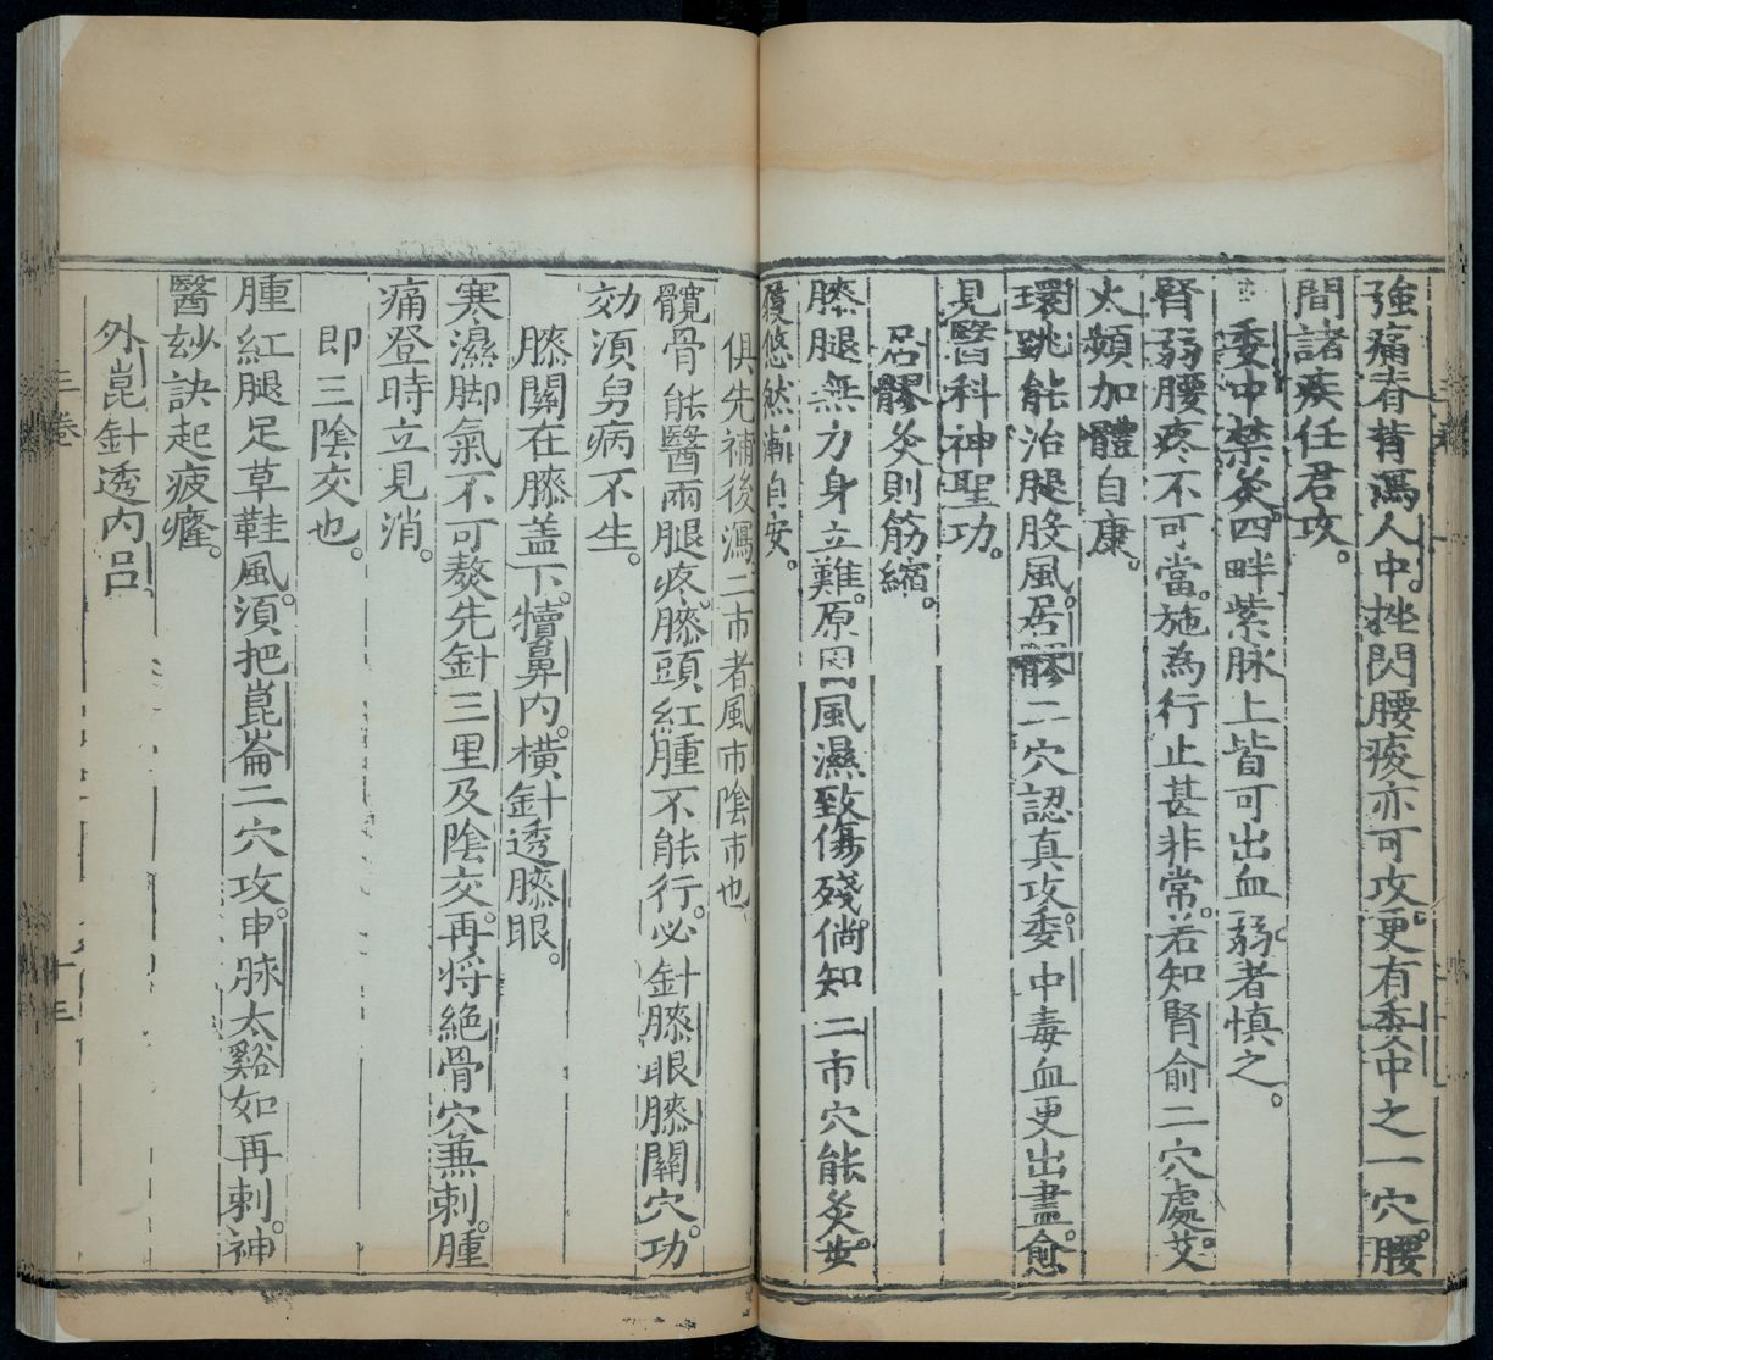 強痛脊背瀉人中。挫閃腰痠亦可攻。更有委中之一穴。腰
間諸疾任君攻。
委中禁灸。四畔紫脉上皆可出血。弱者慎之。
腎弱腰疼不可當。施為行止甚非常。若知腎俞二穴處。艾
火頻加體自康。
環跳能治腿股風。居髎二穴認真攻。委中毒血更出盡。愈
見醫科神聖功。
居髎灸則筋縮。
膝腿無力身立難。原因風濕致傷殘。倘知二市穴能灸。
悠然漸自安。
俱先補後瀉二市者。風市陰市也
髖骨能醫兩腿疼。膝頭紅腫不能行。必針膝眼膝關穴。功
効須臾病不生。
膝關在膝盖下。犢鼻內。橫針透膝眼。
寒濕脚氣不可熬先針三里及陰交。再将絶骨穴兼刺。腫
痛登時立見消。
即三陰交也。
腫紅腿足草鞋風。須把崑崙二穴攻。申脉太谿如再刺。神
醫妙訣起疲癃。
外崑針透內呂
三卷
十三